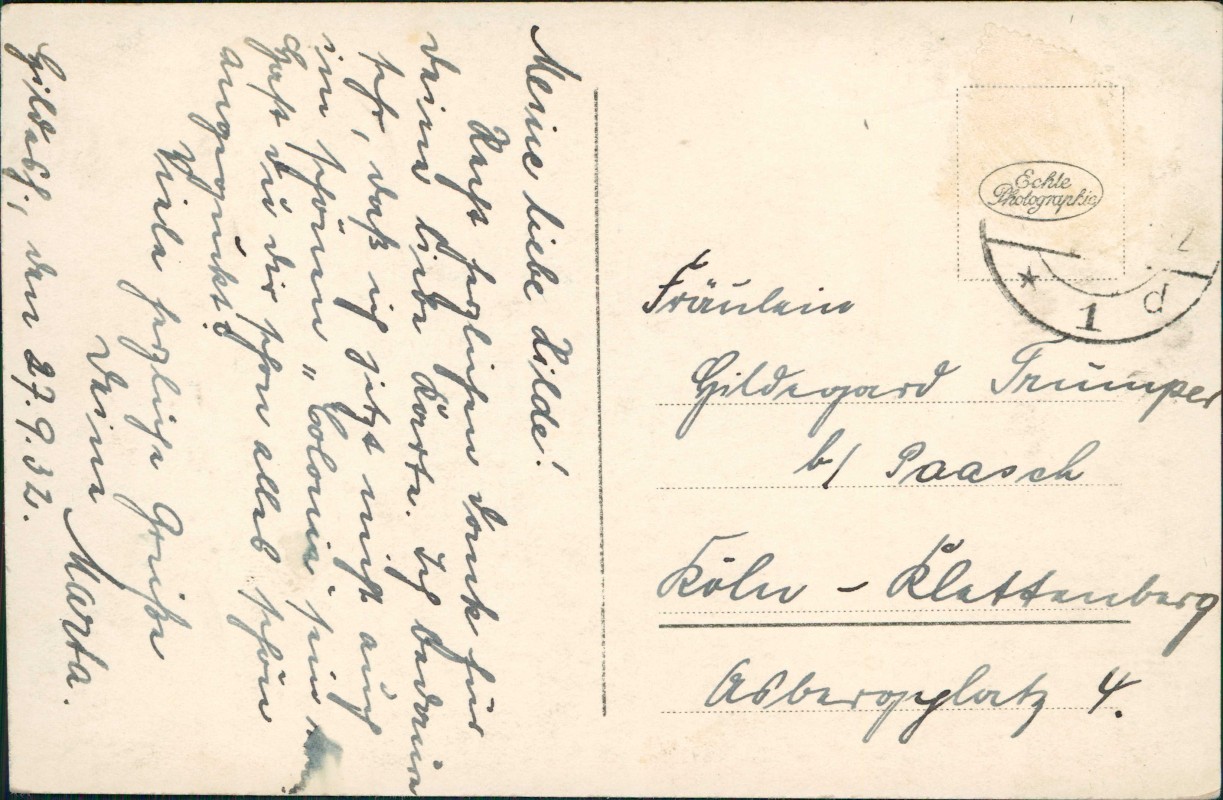 Meine liebe Hilde!
Recht herzlichen Dank für
Deine liebe Karte. Ich bedaure
sehr, daß ich jetzt nicht auch
im schönen "Colonia" sein
Hast Du Dir schon alles schön
angeguckt?
Viele herzliche Grüße
Deine Marta.
Hildesh., den 27.9.32.
Echte
Photographie
* 1 d
Fräulein
Hildegard Trümper
b/ Paasch
Köln - Klettenberg
Asbergplatz 4.